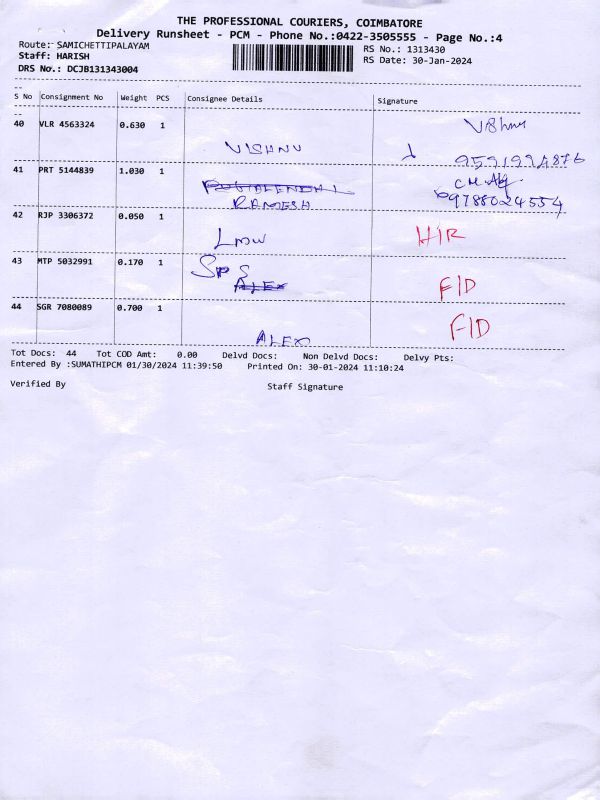 THE PROFESSIONAL COURIERS, COIMBATORE
Delivery Runsheet - PCM - Phone No.:0422-3505555 - Page No.:4
Route: SAMICHETTIPALAYAM
RS No.: 1313430
Staff: HARISH
RS Date: 30-Jan-2024
DRS No.: DCJB131343004
S No Consignment No Weight PCS Consignee Details Signature
40 VLR 4563324 0.630 1
VISHNU
41 PRT 5144839 1.030 1
RAMESH 9788024554
42 RJP 3306372 0.050 1
LMW H/R
43 MTP 5032991 0.170 1 SPS
ALEX F/D
44 SGR 7080089 0.700 1 F/D
ALEX
Tot Docs: 44 Tot COD Amt: 0.00 Delvd Docs: Non Delvd Docs: Delvy Pts:
Entered By :SUMATHIPCM 01/30/2024 11:39:50 Printed On: 30-01-2024 11:10:24
Verified By Staff Signature